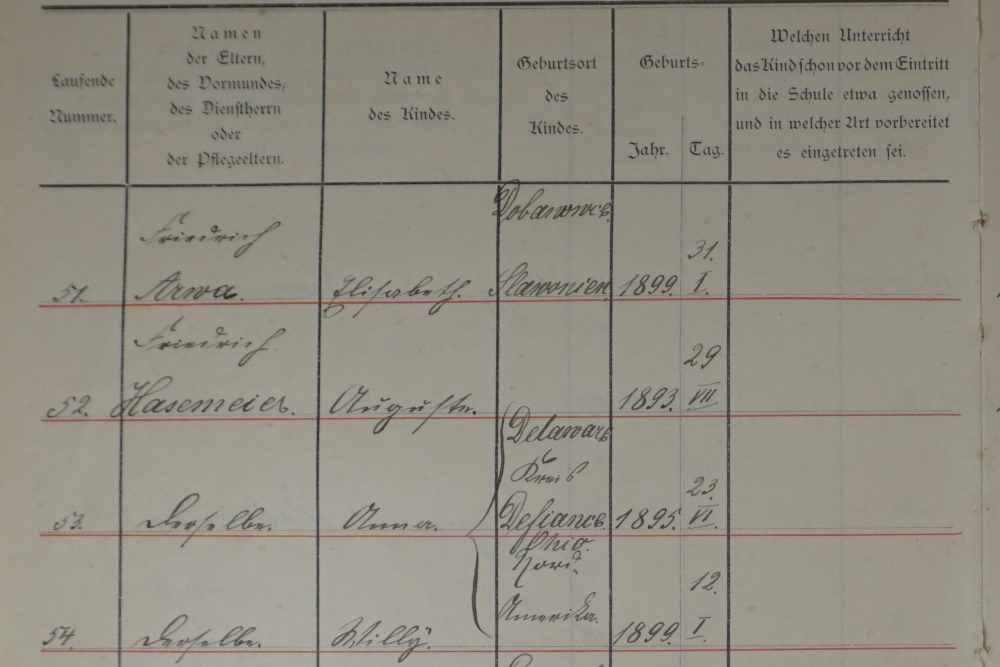 Laufende
Nummer.
Namen
der Eltern,
des Vormundes,
des Dienstherrn
oder
der Pflegeeltern.
Name
des Kindes.
Geburtsort
des
Kindes.
Geburts-
Jahr. Tag.
Welchen Unterricht
das Kind schon vor dem Eintritt
in die Schule etwa genossen,
und in welcher Art vorbereitet
es eingetreten sei.
Dobanowce
Friedrich
31.
51. Arwa. Elisabeth. Slawonien 1899. I.
Friedrich
29
52. Hasemeier. Auguste. 1893. VII
Delaware
Kreis
23.
53. Derselbe. Anna. Defiance. 1895. VI.
Ohio.
Nord-
12.
Amerika.
54. Derselbe. Willy. 1899. I.